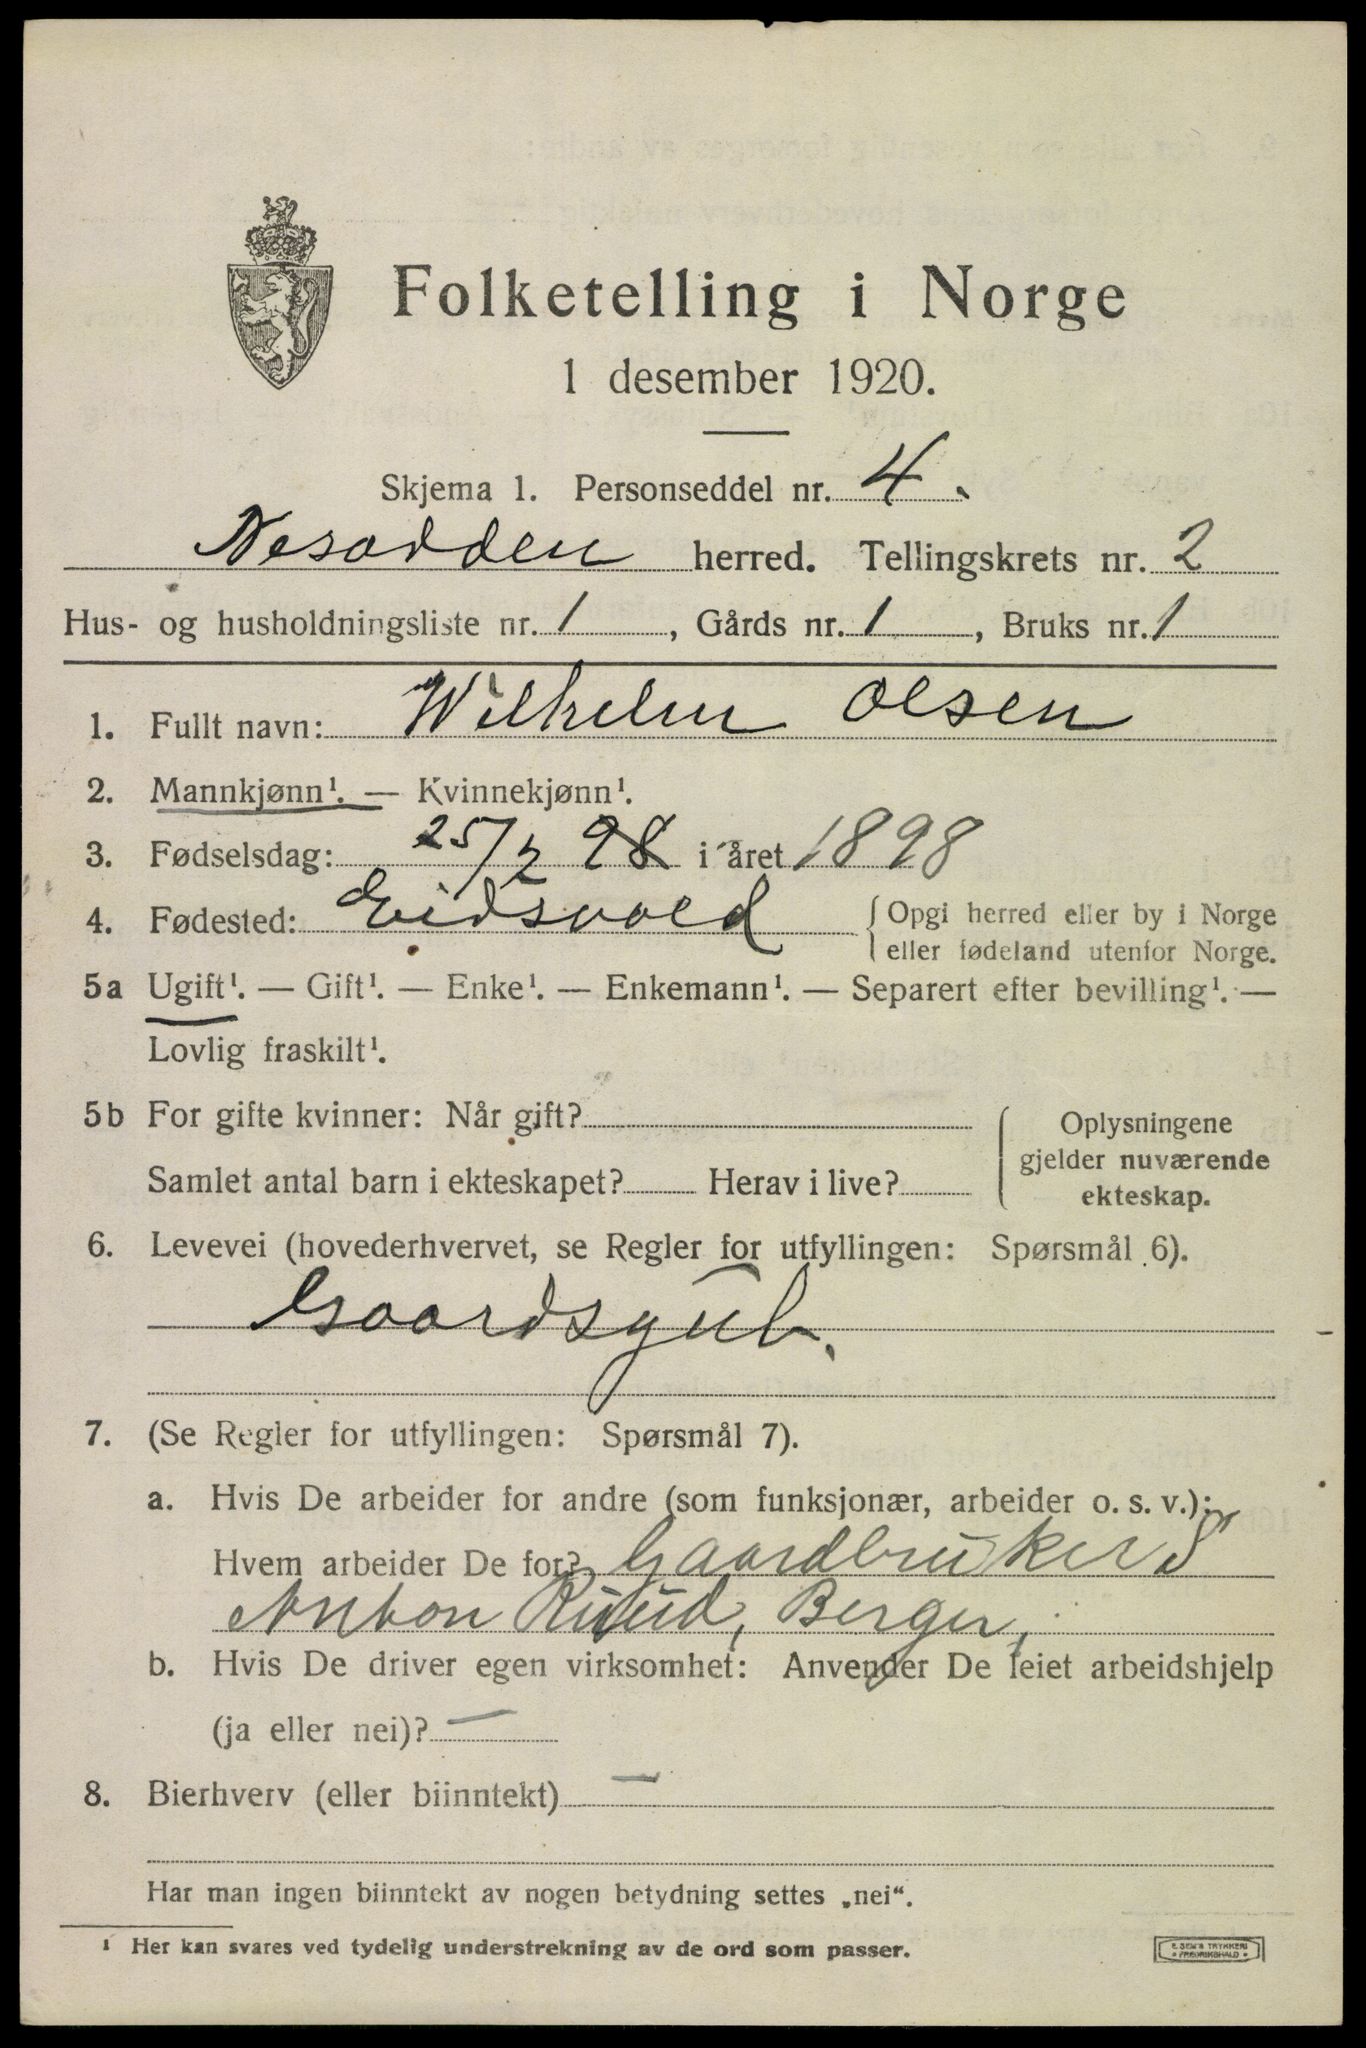 Folketelling i Norge
1 desember 1920.
Skjema 1. Personseddel nr. 4.
Nesodden herred. Tellingskrets nr. 2
Hus- og husholdningsliste nr. 1, Gårds nr. 1, Bruks nr. 1
1. Fullt navn: Wilhelm Olsen
2. Mannkjønn¹. — Kvinnekjønn¹.
3. Fødselsdag: 25/2 98 i året 1898
4. Fødested: Eidsvold { Opgi herred eller by i Norge
eller fødeland utenfor Norge.
5a Ugift¹. — Gift¹. — Enke¹. — Enkemann¹. — Separert efter bevilling¹. —
Lovlig fraskilt¹.
5b For gifte kvinner: Når gift?
Samlet antal barn i ekteskapet? Herav i live?
Oplysningene
gjelder nuværende
ekteskap.
6. Levevei (hovederhvervet, se Regler for utfyllingen: Spørsmål 6).
Gaardsgut.
7. (Se Regler for utfyllingen: Spørsmål 7).
a. Hvis De arbeider for andre (som funksjonær, arbeider o. s. v.):
Hvem arbeider De for? Gaardbruker S
Anton Ruud, Berger,
b. Hvis De driver egen virksomhet: Anvender De leiet arbeidshjelp
(ja eller nei)? —
8. Bierhverv (eller biinntekt) —
Har man ingen biinntekt av nogen betydning settes „nei“.
¹ Her kan svares ved tydelig understrekning av de ord som passer.
E. SEM'S TRYKKERI
FREDRIKSHALD